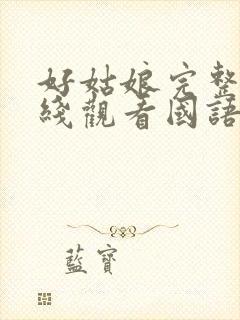 好姑娘完整
綫觀看國語
藍寶